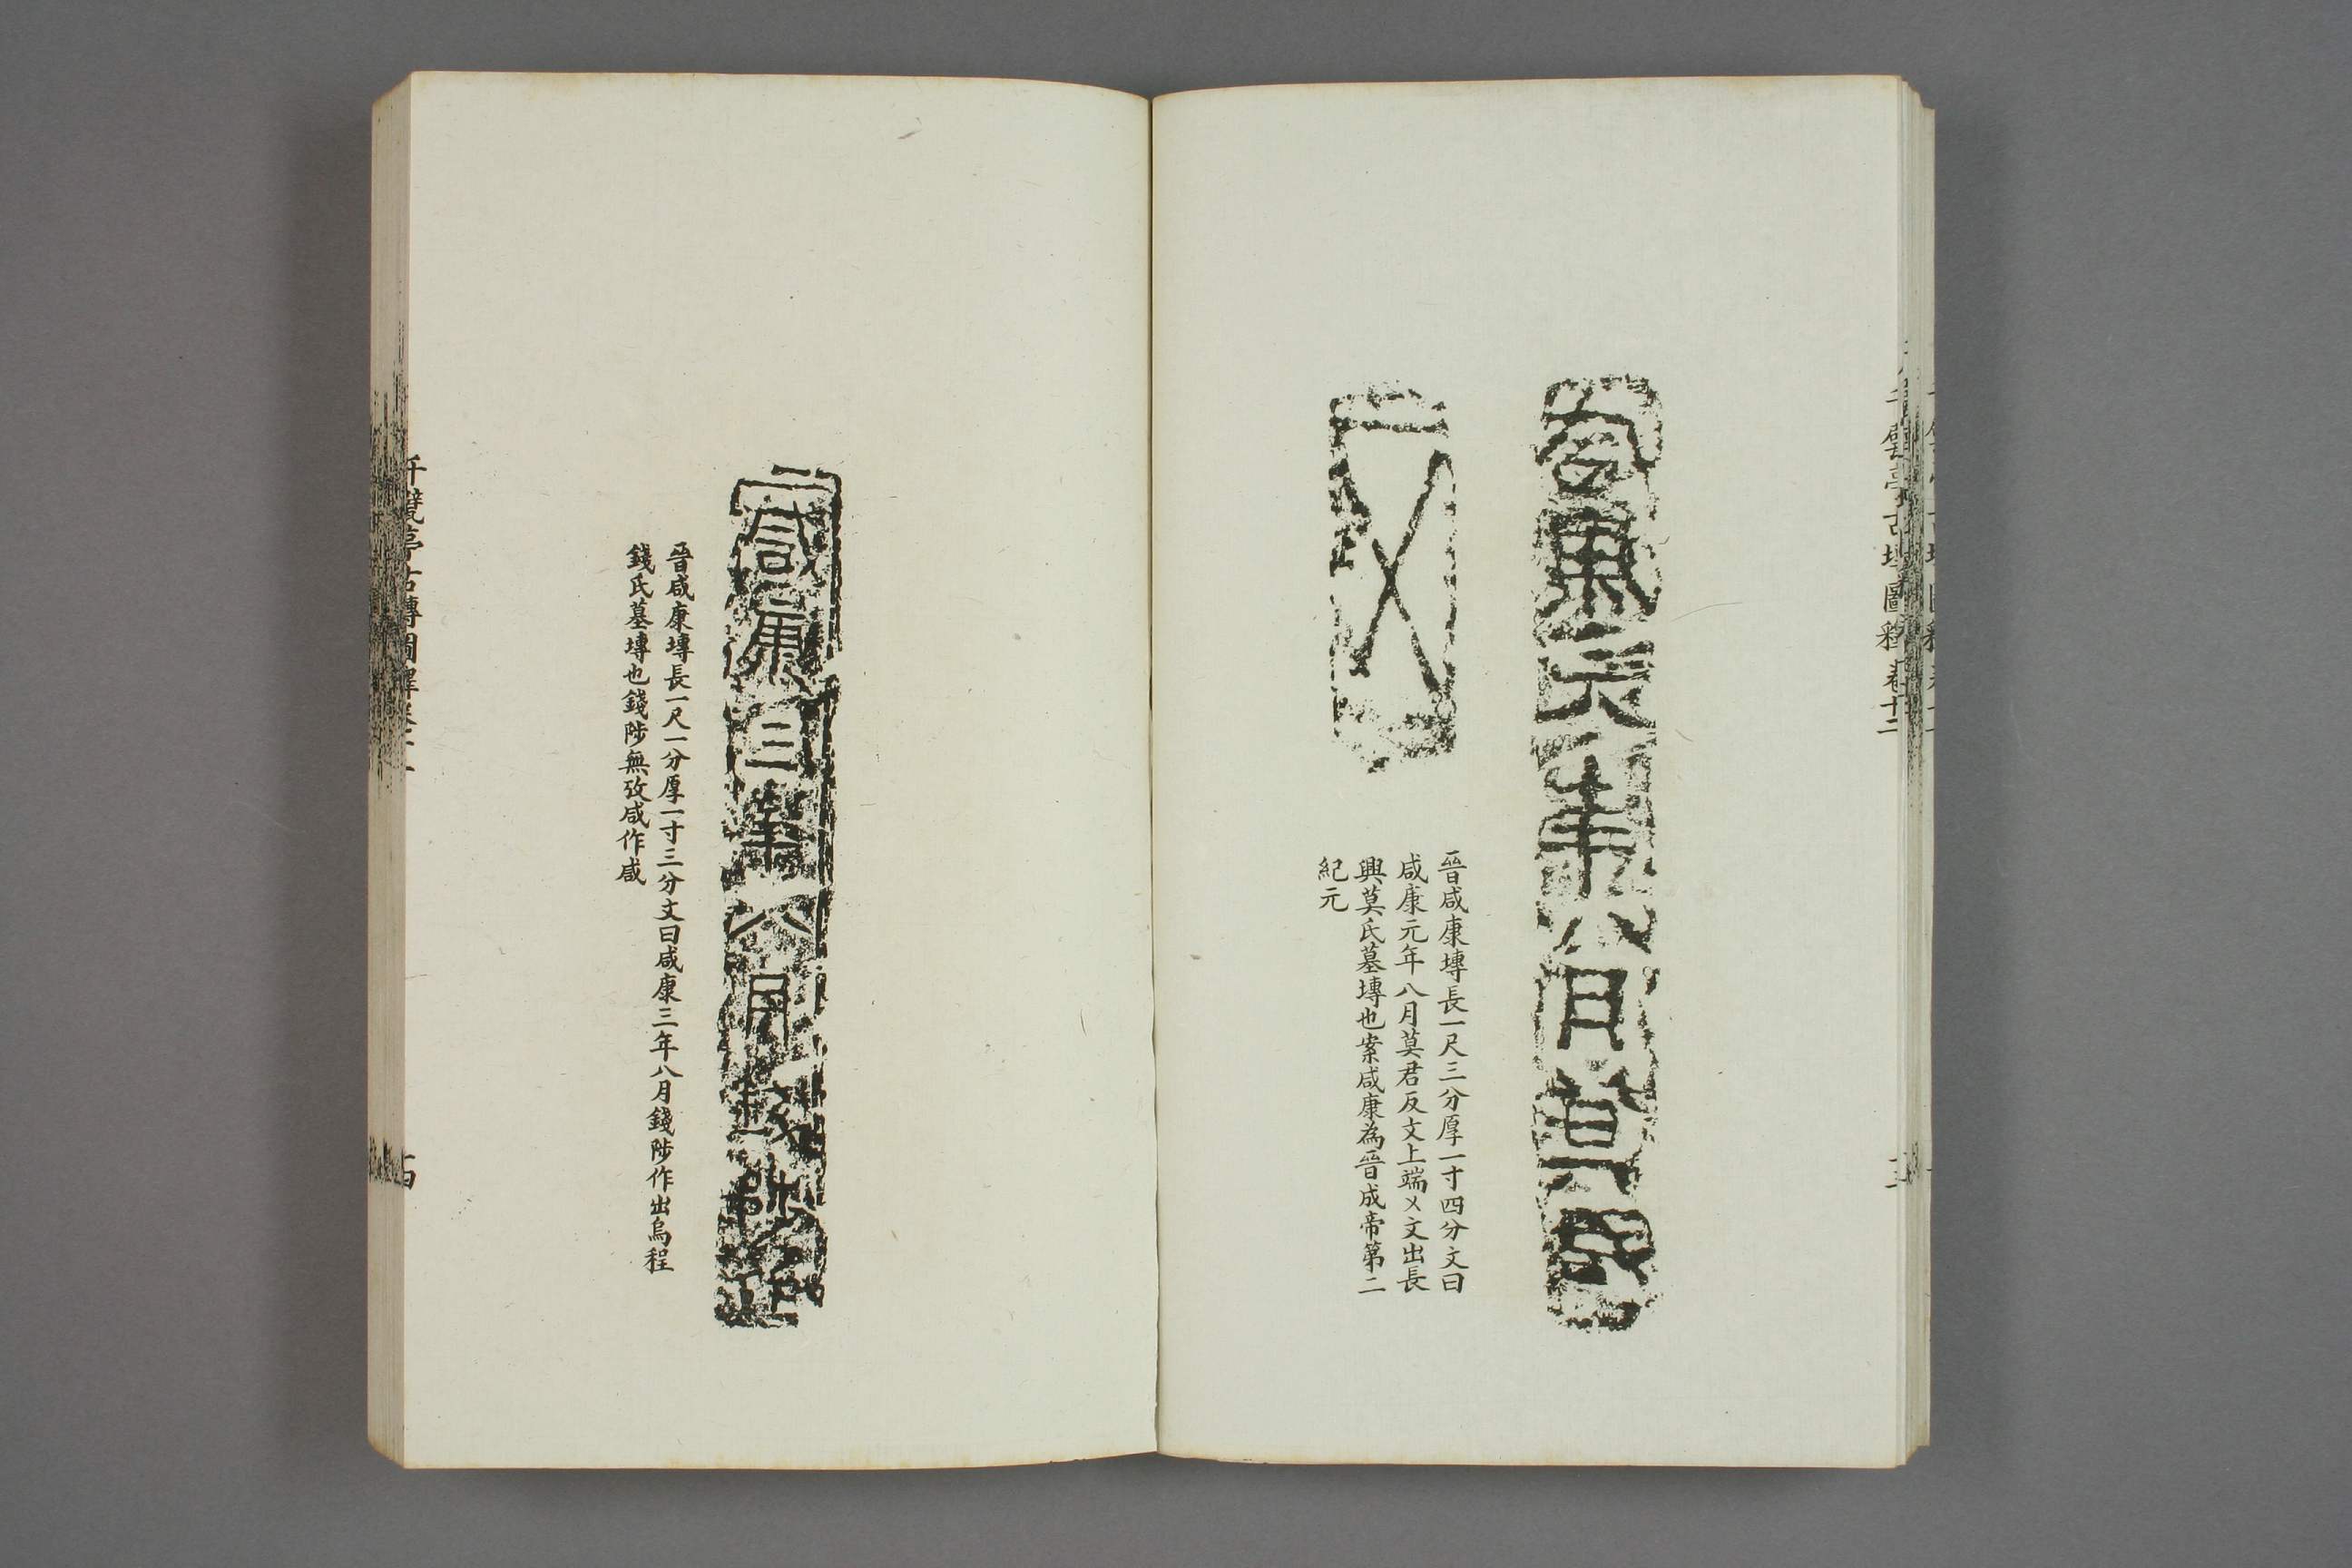 千甓亭古塼圖釋卷十二
咸康元年八月莫君
晉咸康塼長一尺三分厚一寸四分文曰
咸康元年八月莫君反文上端㐅文出長
興莫氏墓塼也案咸康為晉成帝第二
紀元
咸康三年八月錢陟作
晉咸康塼長一尺一分厚一寸三分文曰咸康三年八月錢陟作出烏程
錢氏墓塼也錢陟無攷咸作咸
千甓亭古塼圖釋卷十二